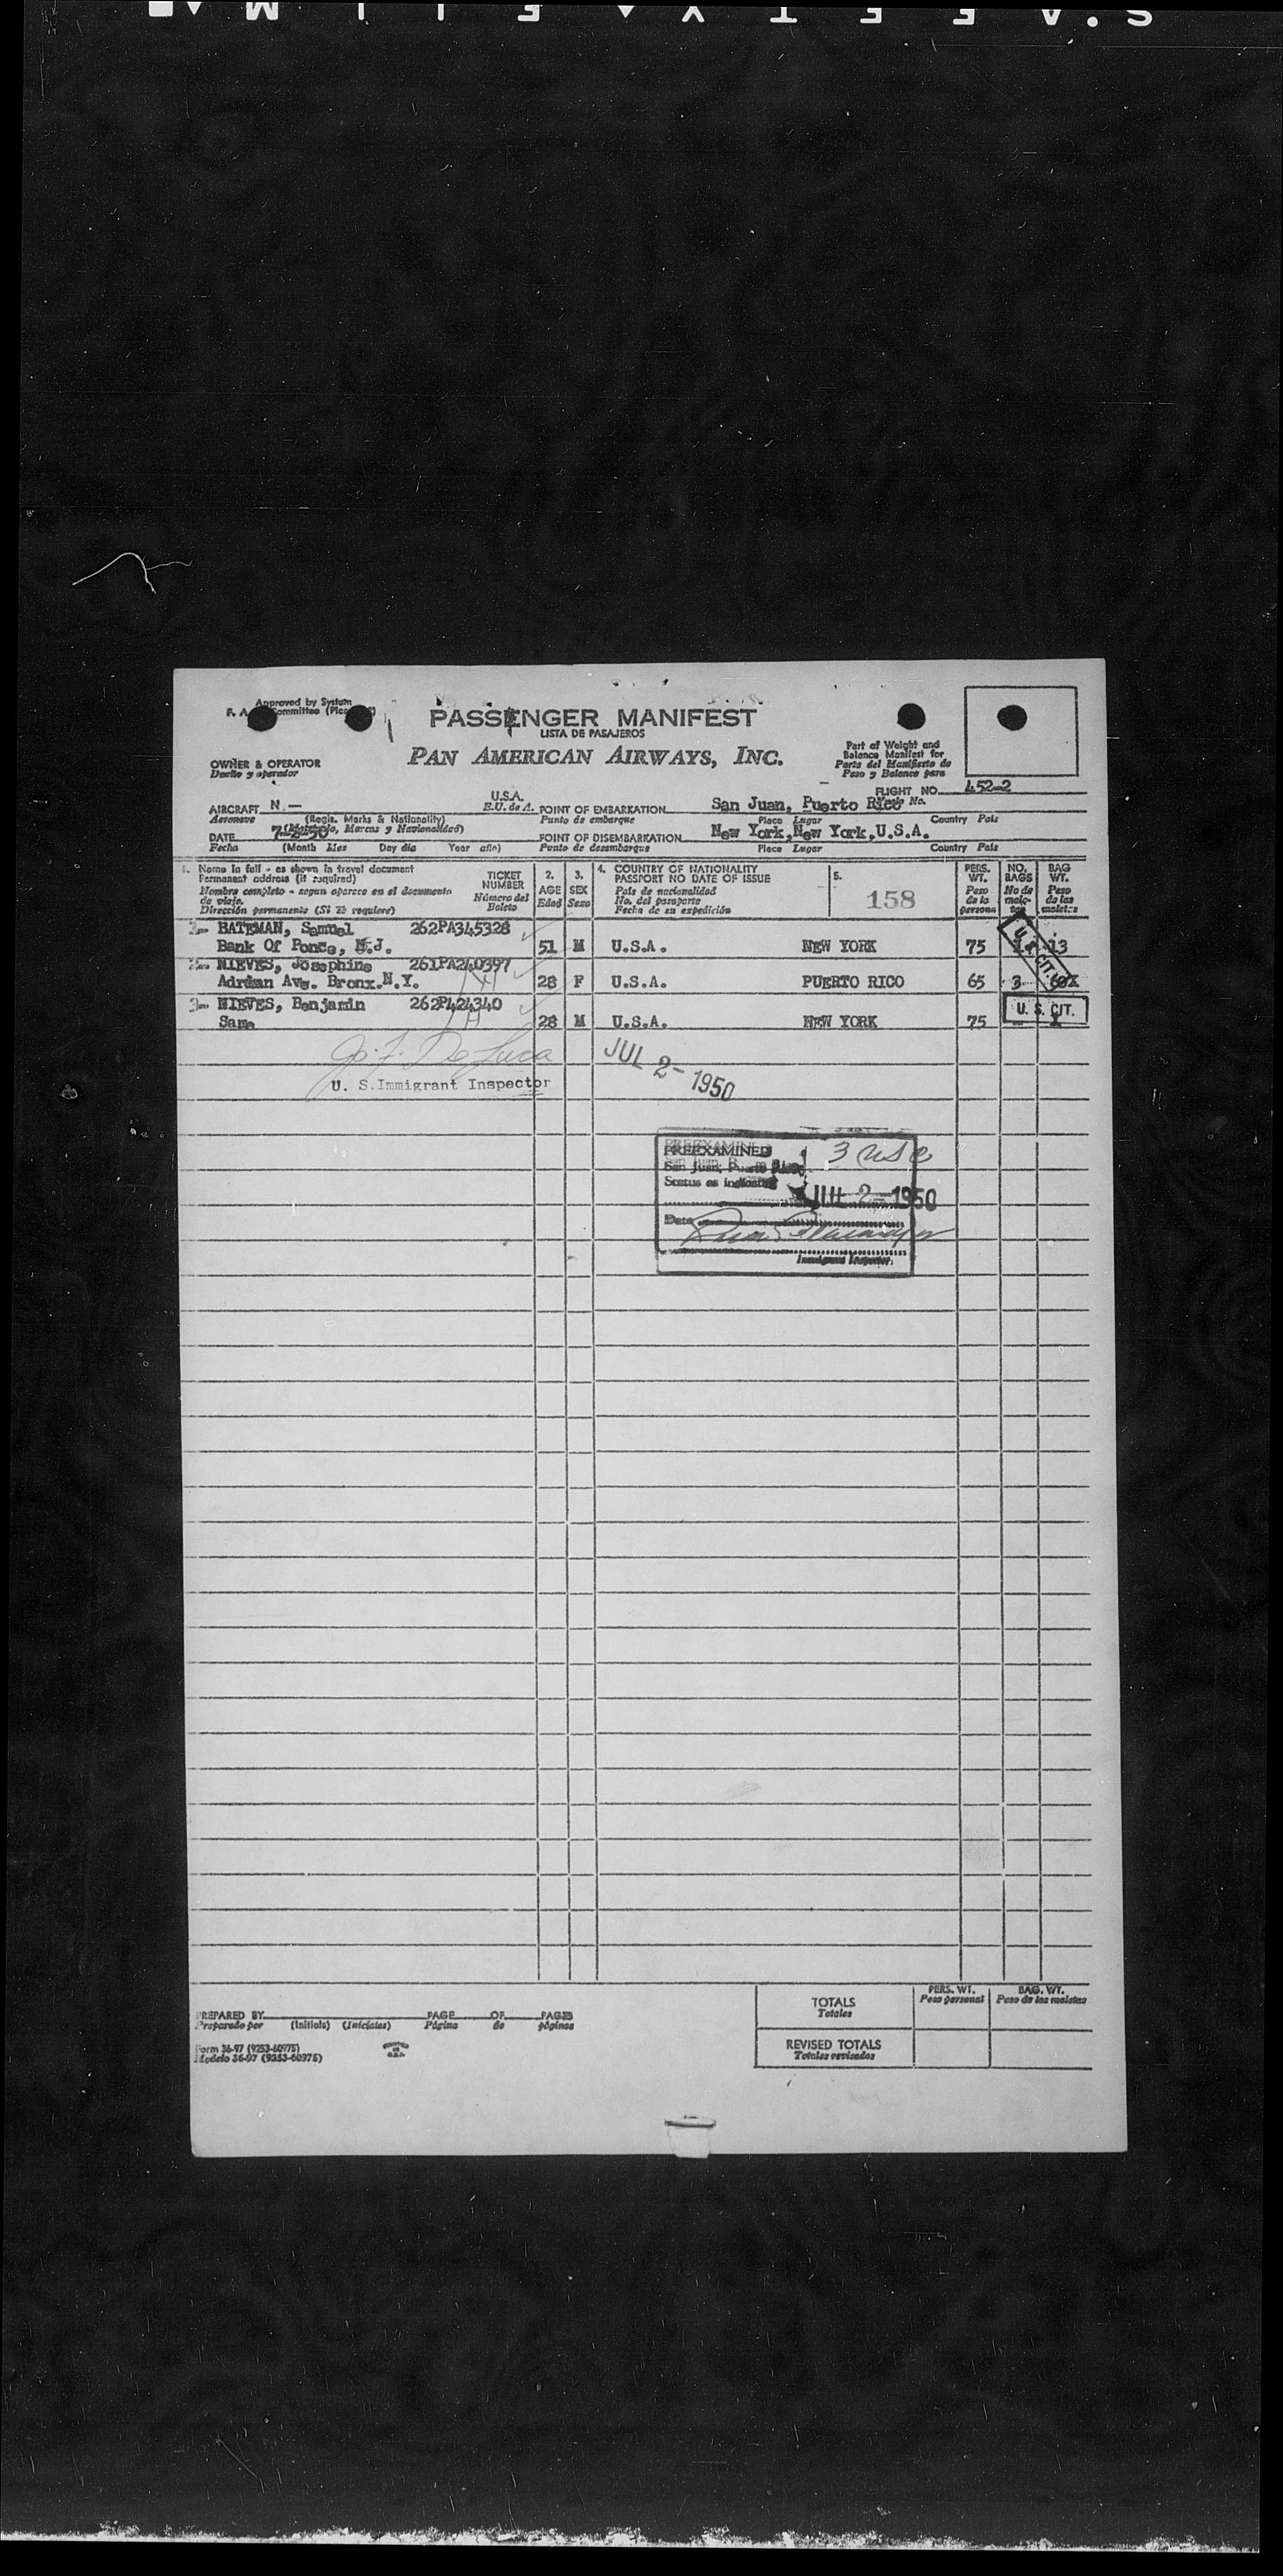 Approved by System
PASSENGER MANIFEST
LISTA DE PASAJEROS
PAN AMERICAN AIRWAYS, INC.
Part of Weight and
Balance Manifest for
Parte del Manifiesto de
Peso y Balance para
OWNER & OPERATOR
Dueño y operador
FLIGHT NO. 452-2
Vuelo No.
AIRCRAFT N — U.S.A.
Aeronave (Regis. Marks & Nationality) E.U. de A.
(Matrícula, Marcas y Nacionalidad)
POINT OF EMBARKATION San Juan, Puerto Rico
Punto de embarque Place Lugar Country País
DATE 7-2-50
Fecha (Month Mes Day día Year año)
POINT OF DISEMBARKATION New York,New York,U.S.A.
Punto de desembarque Place Lugar Country País
1. Name in full - as shown in travel document
Permanent address (if required)
Nombre completo - segun aparece en el documento
de viaje.
Dirección permanente (Si se requiere)
TICKET
NUMBER
Número del
Boleto
2.
AGE
Edad
3.
SEX
Sexo
4. COUNTRY OF NATIONALITY
PASSPORT NO DATE OF ISSUE
País de nacionalidad
No. del pasaporte
Fecha de su expedición
5.
158
PERS.
WT.
Peso
de la
persona
NO.
BAGS
No de
male-
tas
BAG
WT.
Peso
de las
maletas
1- BATEMAN, Samuel 262PA345328
Bank Of Ponce, N.J. 51 M U.S.A. NEW YORK 75 13
2- NIEVES, Josephine 261PA240397
Adrian Ave. Bronx.N.Y. 28 F U.S.A. PUERTO RICO 65 3
U. S. CIT.
3- NIEVES, Benjamin 262P424340
Same 28 M U.S.A. NEW YORK 75
U. S. CIT.
Jo. F. De Luca
U. S. Immigrant Inspector
JUL 2- 1950
PREEXAMINED
San Juan, Puerto Rico
Status as indicated
3 USC
JUL 2- 1950
Date
Immigrant Inspector.
PREPARED BY PAGE OF PAGES
Preparado por (Initials) (Iniciales) Página de páginas
Form 36-97 (9253-60975)
Modelo 36-97 (9253-60975)
PERS. WT.
Peso personal
BAG. WT.
Peso de las maletas
TOTALS
Totales
REVISED TOTALS
Totales revisados